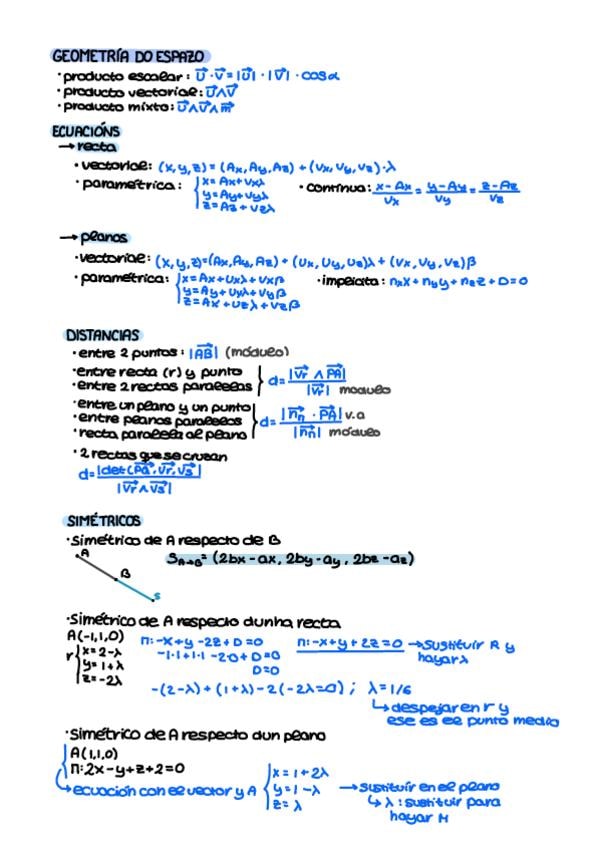 GEOMETRÍA DO ESPAZO
· producto escalar: U⃗ · V⃗ = |U⃗| · |V⃗| · cosα
· producto vectorial: U⃗∧V⃗
· producto mixto: U⃗∧V⃗∧m⃗
ECUACIÓNS
→ recta
· vectorial: (x,y,z) = (Ax,Ay,Az) + (Vx,Vy,Vz)·λ
· paramétrica: { x = Ax+Vxλ · continua: x-Ax/Vx = y-Ay/Vy = z-Az/Vz
y = Ay+Vyλ
z = Az + Vzλ
→ planos
· vectorial: (x,y,z)=(Ax,Ay,Az) + (Ux,Uy,Uz)λ + (Vx,Vy,Vz)β
· paramétrica: { x = Ax+Uxλ+Vxβ · implícita: nxX + nyy + nzz + D=0
y = Ay + Uyλ+Vyβ
z = Ax + Uzλ + Vzβ
DISTANCIAS
· entre 2 puntos: |AB⃗| (módulo)
· entre recta (r) y punto
· entre 2 rectas paralelas } d = |Vr⃗ ∧ PA⃗| / |Vr⃗| modulo
· entre un plano y un punto
· entre planos paralelos } d = |nπ⃗ · PA⃗| v.a / |nπ⃗| módulo
· recta paralela al plano
· 2 rectas que se cruzan
d = |det(PA⃗, Vr⃗, Vs⃗)| / |Vr⃗ ∧ Vs⃗|
SIMÉTRICOS
· Simétrico de A respecto de B
A
S A→B = (2bx - ax, 2by - ay, 2bz - az)
B
S
· Simétrico de A respecto dunha recta
A(-1,1,0) π: -x+y -2z + D = 0 π: -x+y + 2z = 0 → Sustituír R y
r { x = 2-λ -1·1+1·1 -2·0 + D = 0 hayar λ
y = 1+λ D=0
z = -2λ
-(2-λ) + (1+λ) - 2(-2λ=0) ; λ = 1/6
↳ despejar en r y
ese es el punto medio
· Simétrico de A respecto dun plano
A(1,1,0)
π: 2x - y + z + 2 = 0
↳ ecuación con el vector y A { x = 1 + 2λ
y = 1 - λ → sustituír en el plano
z = λ ↳ λ : sustituír para
hayar M